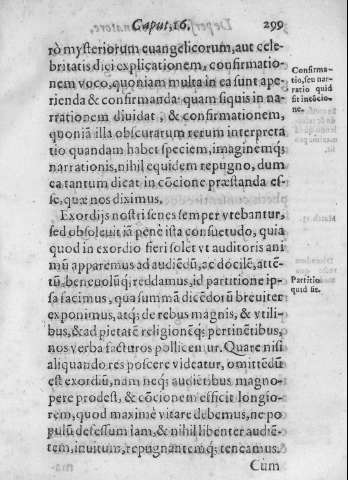 Caput, 16. 299
rò mysteriorum euangelicorum, aut cele-
britatis diei explicationem, confirmatio-
nem voco, quoniam multa in ea sunt ape-
rienda & confirmanda: quam siquis in nar-
rationem diuidat, & confirmationem,
quoniā illa obscuratum rerum interpreta
tio quandam habet speciem, imaginemq;
narrationis, nihil equidem repugno, dum
ea tantum dicat in cōcione præstanda es-
se, quæ nos diximus.
Exordijs nostri senes semper vtebantur,
sed obsoleuit iā penè ista consuetudo, quia
quod in exordio fieri solet vt auditoris ani
mū apparemus ad audiēdū, ac docilē, attē-
tū, beneuolūq; reddamus, id partitione ip-
sa facimus, qua summā dicēdorū breuiter
exponimus, atq; de rebus magnis, & vtili-
bus, & ad pietatē religionēq; pertinētibus,
nos verba facturos pollicemur. Quare nisi
aliquando res poscere videatur, omittēdū
est exordiū, nam neq; audiētibus magno-
pere prodest, & cōcionem efficit longio-
rem, quod maximè vitare debemus, ne po
pulū defessum iam, & nihil libenter audiē-
tem, inuitum, repugnantemq; teneamus.
Cùm
Confirma-
tio, seu nar-
ratio quid
sit in cōcio
ne.
Partitio
quid sit.